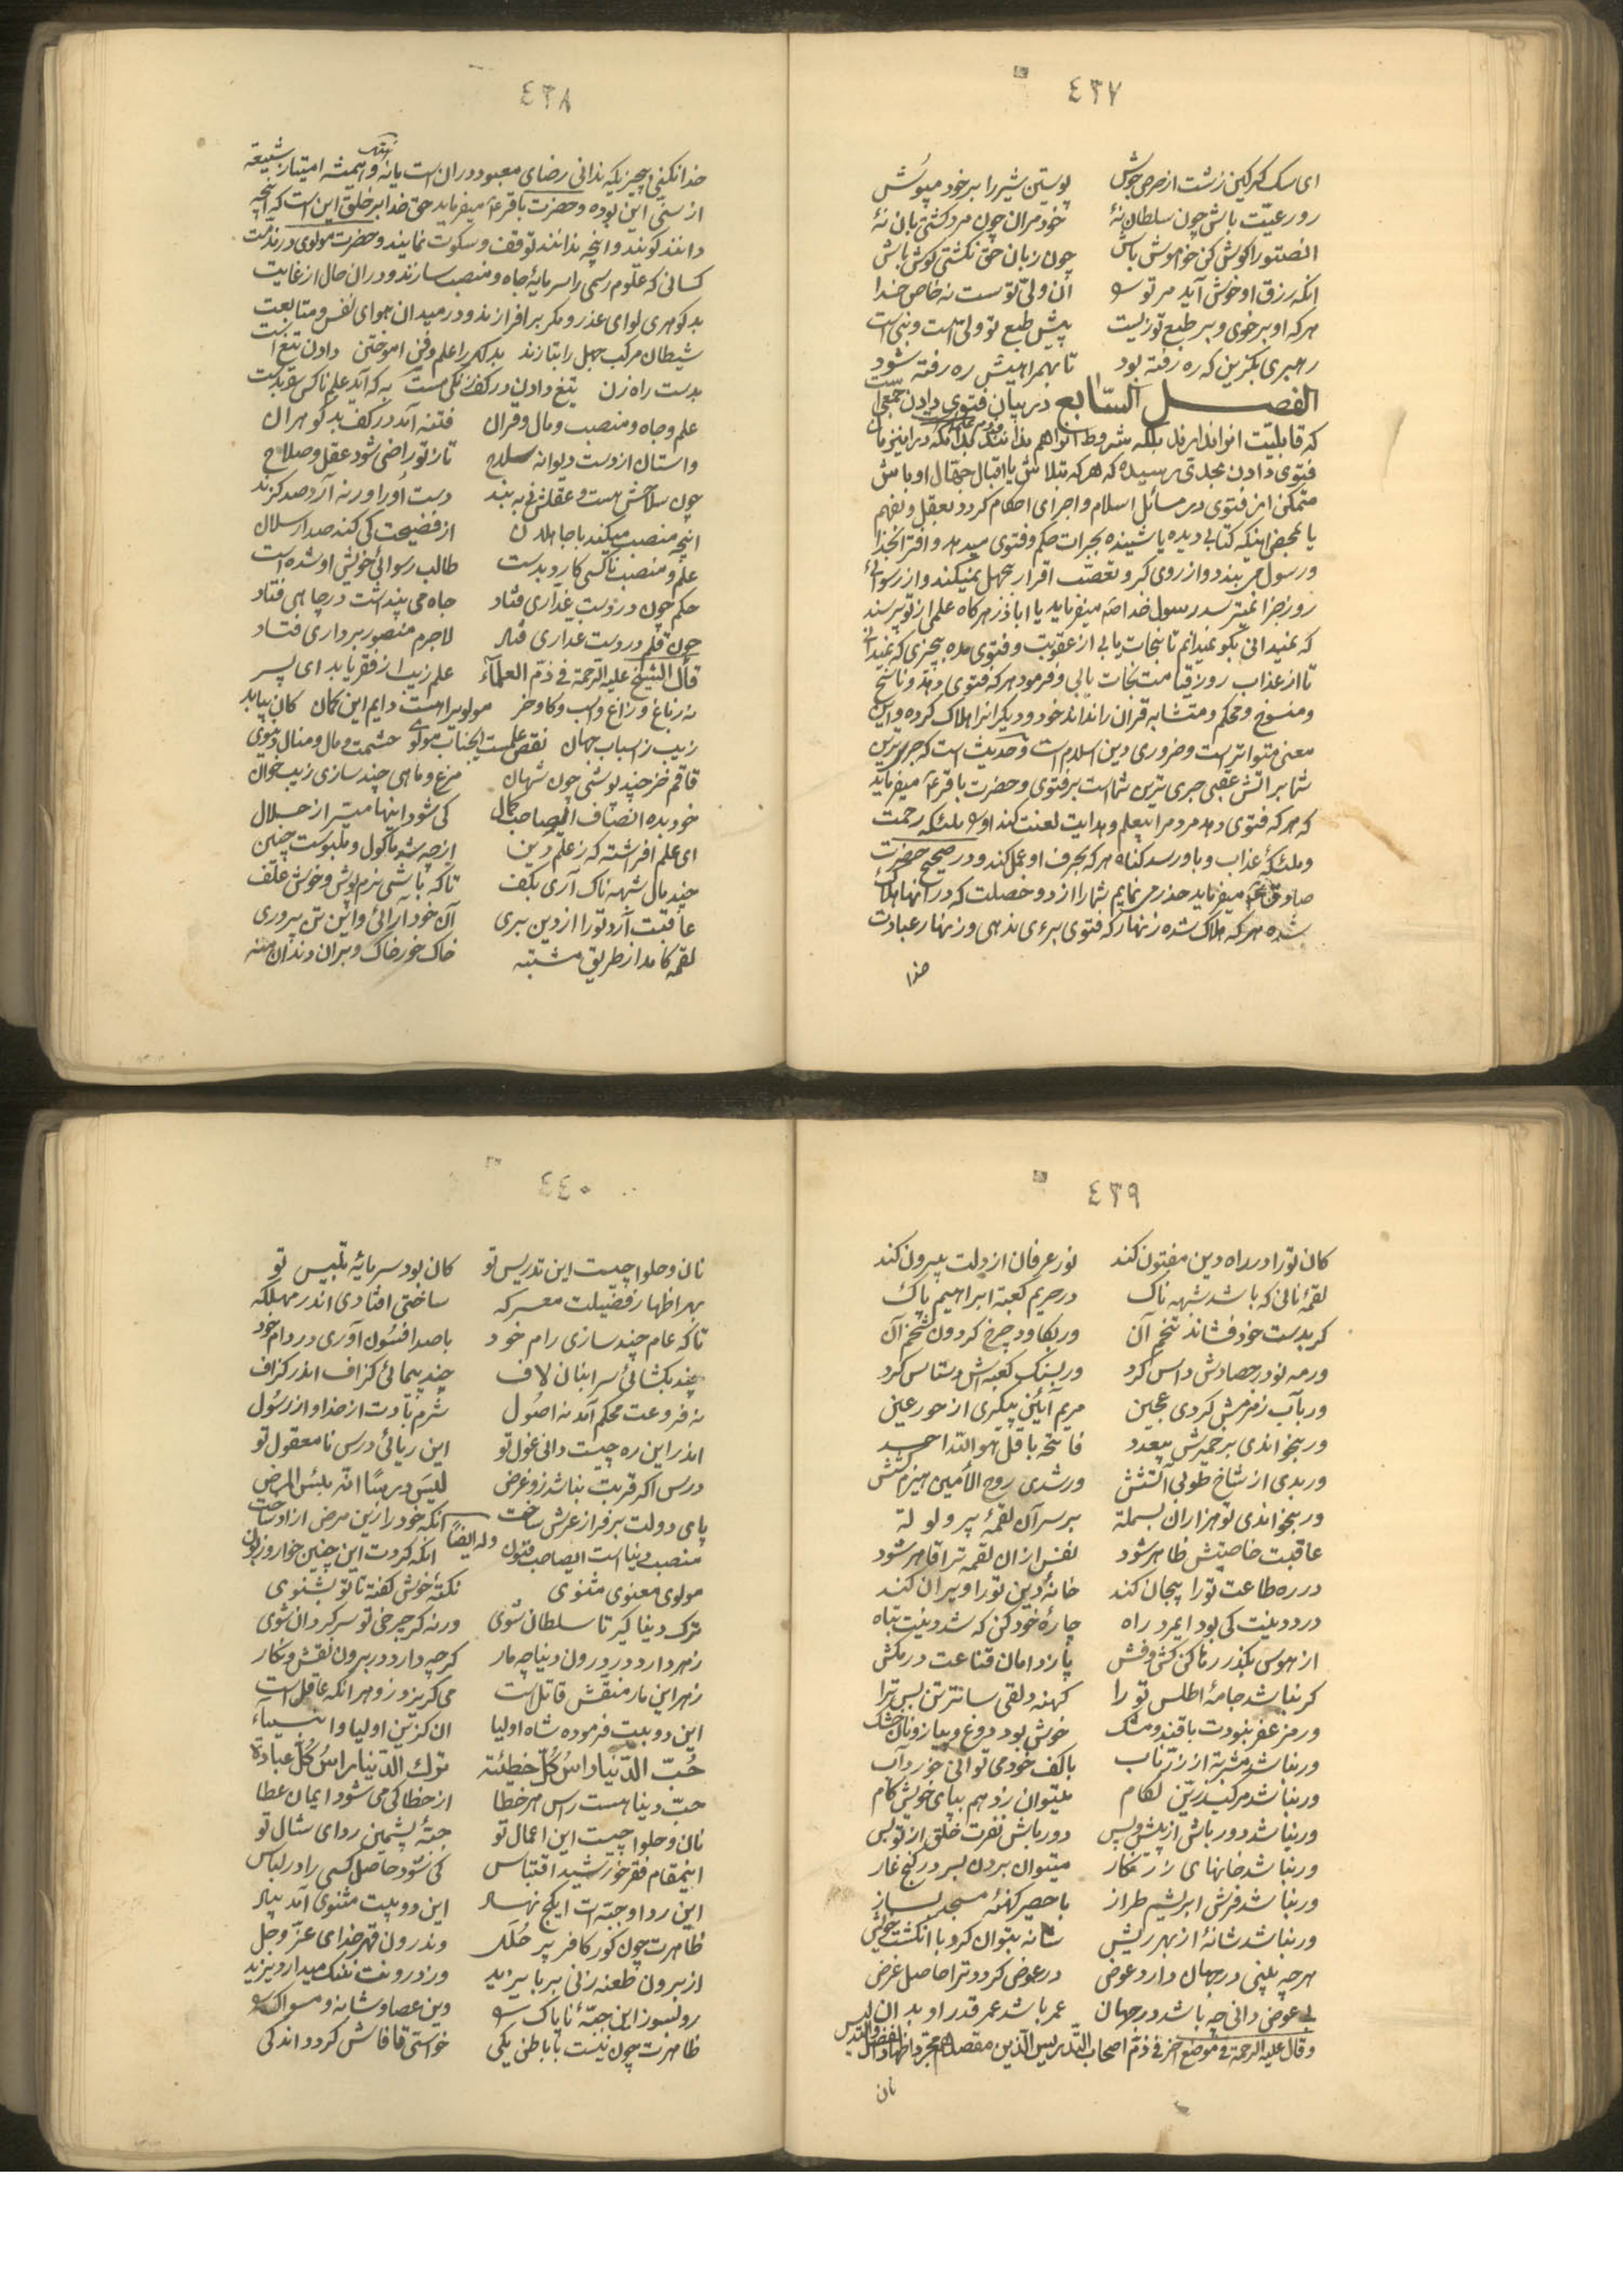 ٤٣٧
ای سک کرکین زشت از حرص جوش پوستین شیر را بر خود مپوش
رو رعیّت باش چون سلطان نهٔ خود مران چون مرد کشتیبان نهٔ
انصتوا را کوش کن خاموش باش چون زبان حق نکشتی کوش باش
انکه رزق او خوش آید مر تو را آن ولیّ توست نه خاص خدا
هر که او بر خوی و بر طبع تو زیست پیش طبع تو ولی است و نبی است
رهبری بکزین که ره رفته بود تا بهمراهیش ره رفته شود
الفصل السّابع در بیان فتوی دادن جمعی است
که قابلیّت انرا ندارند بلکه شروط انرا هم ندانند
فتوی دادن بحدّی رسیده که هر که بتلاش یا اقبال جهّال اوباش
متمکن از فتوی در مسائل اسلام و اجرای احکام کردد بعقل و بفهم
یا بمحض اینکه کتابی دیده یا شینده بجرات حکم و فتوی میدهد و افترا بخدا
و رسول می بندد و از روی کبر و تعصّب اقرار بجهل نمیکند و از رسوائی
روز جزا نمیترسد رسول خدا میفرماید یا اباذر هر کاه علمی از تو پرسند
که نمیدانی بکو نمیدانم تا نجات یابی از عقوبت و فتوی مده بچیزی که نمیدانی
تا از عذاب روز قیامت نجات یابی و فرمود هر که فتوی دهد و ناسخ
و منسوخ و محکم و متشابه قران را نداند خود و دیکرانرا هلاک کرده و این
معنی متواتر است و ضروری دین اسلام است و حدیث است که جری ترین
شما بر اتش عقبی جری ترین شماست بر فتوی و حضرت باقر ع میفرماید
که هر که فتوی دهد مردم را بیعلم و هدایت لعنت کند او را ملئکه رحمت
و ملئکهٔ عذاب و باو رسد کناه هر که بحرف او عمل کند و در صحیح حضرت
صادق ع میفرماید حذر می نمایم شما را از دو خصلت که در انها هلاک
شده هر که هلاک شده زنهار که فتوی برءی ندهی و زنهار عبادت
خدا
٤٣٨
خدا نکنی بچیزیکه ندانی رضای معبود در ان است یا نه و همیشه امتیاز شیعه
از سنّی این بوده و حضرت باقر ع میفرماید حق خدا بر خلق این است که انچه
دانند کویند و انچه ندانند توقف و سکوت نمایند و حضرت مولوی در مذمّت
کسانی که علوم رسمی را سرمایهٔ جاه و منصب سازند و در ان حال از غایت
بد کوهری لوای عذر و مکر بر افرازند و در میدان هوای نفس و متابعت
شیطان مرکب جهل را بتازند بد کهر را علم و فن اموختن دادن تیغ است
بدست راه زن تیغ دادن در کف زنکی مست به که آید علم ناکس را بدست
علم و جاه و منصب و مال و قران فتنه آمد در کف بد کوهران
واستان از دست دیوانه سلاح تا ز تو راضی شود عقل و صلاح
چون سلاحش هست و عقلش نی به بند دست او را ور نه آرد صد کزند
انچه منصب میکند با جاهلان از فضیحت کی کند صد ارسلان
علم و منصب ناکسی کارد بدست طالب رسوائی خویش او شده است
حکم چون در دست غدّاری فتاد جاه می پنداشت در چاهی فتاد
چون قلم در دست غداری فتاد لاجرم منصور بر داری فتاد
قال الشیخ علیه الرحمة فی ذمّ العلمآء علم زیب از فقر یابد ای پسر
نه ز باغ و راغ و اسب و کاو و خر مولویرا هست دایم این کمان کان بیابد
زیب ز اسباب جهان نقص علمست ایجناب مولوی حشمت و مال و منال دنیوی
قاقم خز چند پوشی چون شهان مرغ و ماهی چند سازی زیب خوان
خود بده انصاف ایصاحب کمال کی شود اینها میسّر از حلال
ای علم افراشته که ز علم دین از چه شد ماکول و ملبوست چنین
چند مال شبهه ناک آری بکف تا که باشی نرم پوش و خوش علف
عاقبت آرد تو را از دین بری آن خود آرائی و این تن پروری
لقمه کامد از طریق مشتبه خاک خور خاک و بر ان دندان منه
٤٣٩
کان تو را در راه دین مفتون کند نور عرفان از دلت بیرون کند
لقمهٔ نانی که باشد شبهه ناک در حریم کعبهٔ ابراهیم پاک
کر بدست خود فشاند تخم آن ور بکاو چرخ کردون شخم آن
ور مه نو در حصادش داس کرد ور بسنک کعبه اش دستاس کرد
ور بآب زمزمش کردی عجین مریم آئین پیکری از حور عین
ور بخواندی بر خمیرش بیعدد فاتحه با قل هو اللّه احد
ور بدی از شاخ طوبی آتشش ور شدی روح الأمین هیزم کشش
ور بخواندی تو هزاران بسملة بر سر آن لقمهٔ پر ولولة
عاقبت خاصیتش ظاهر شود نفس از ان لقمه ترا قاهر شود
در ره طاعت تو را بیجان کند خانهٔ دین تو را ویران کند
درد دینت کی بود ایمرد راه چارهٔ خود کن که شد دینت تباه
از هوس بکذر رها کن کش و فش پا ز دامان قناعت در مکش
کر نباشد جامهٔ اطلس تو را کهنه دلقی ساتر تن بس ترا
ور مزعفر نبودت با قند و مشک خوش بود دوغ و پیاز و نان خشک
ور نباشد مشربه از زرّ ناب با کف خود می توانی خورد آب
ور نباشد مرکب زرّین لکام میتوان زد هم بپای خویش کام
ور نباشد دور باش از پیش و پس دور باش نفرت خلق از تو بس
ور نباشد خانهای زر نکار میتوان بردن بسر در کنج غار
ور نباشد فرش ابریشم طراز با حصیر کهنهٔ مسجد بساز
ور نباشد شانهٔ از بهر ریش شانه بتوان کرد با انکشت خویش
هر چه بینی در جهان دارد عوض در عوض کردد ترا حاصل غرض
بی عوض دانی چه باشد در جهان عمر باشد عمر قدر او بدان
و قال علیه الرحمة فی موضع اخر فی ذمّ اصحاب التّدریس الّذین مقصدهم مجرد اظهار الفضل
نان
٤٤٠
نان و حلوا چیست این تدریس تو کان بود سرمایهٔ تلبیس تو
بهر اظهار فضیلت معرکه ساختی افتادی اندر مهلکه
تا که عام چند سازی رام خود با صد افسون آوری در دام خود
چند بکشائی سر انبان لاف چند پیمائی کزاف اندر کزاف
نه فروعت محکم آمد نه اصول شرم بادت از خدا و از رسول
اندر این ره چیست دانی غول تو این ریائی درس نامعقول تو
درس اکر قربت نباشد زو غرض لیس درسًا انّه بئس المرض
پای دولت بر فراز عرش ساخت انکه خود را زین مرض ازاد ساخت
وله ایضاً
منصب دنیاست ایصاحب فنون انکه کردت این چنین خوار و زبون
مولوی معنوی مثنوی نکتهٔ خوش کفته تا تو بشنوی
ترک دنیا کیر تا سلطان شوی ورنه کر چرخی تو سر کردان شوی
زهر دارد در درون دنیا چه مار کرچه دارد در برون نقش و نکار
زهر این مار منقّش قاتل است می کریزد زو هر انکه عاقل است
این دو بیت فرموده شاه اولیا ان کزین اولیا و انبیآء
حُبّ الدّنیا راسُ کُلّ خطیئة ترک الدّنیا راسُ کُلّ عبادة
حبّ دنیا هست راس هر خطا از خطا کی می شود ایمان عطا
نان و حلوا چیست این اعمال تو جبّهٔ پشمین ردای شال تو
اینمقام فقر خورشید اقتباس کی شود حاصل کسی را در لباس
این ردا و جبّه ات ایکج نهاد این دو بیت مثنوی آمد بیاد
ظاهرت چون کور کافر پر حُلَل وندرون قهر خدای عزّ و جل
از برون طعنه زنی بر بایزید وز درونت ننک میدارد یزید
رو بسوز این جبّهٔ ناپاک را وین عصا و شانه و مسواک را
ظاهرت چون نیست با باطن یکی خواستی قا فاش کردد اندکی